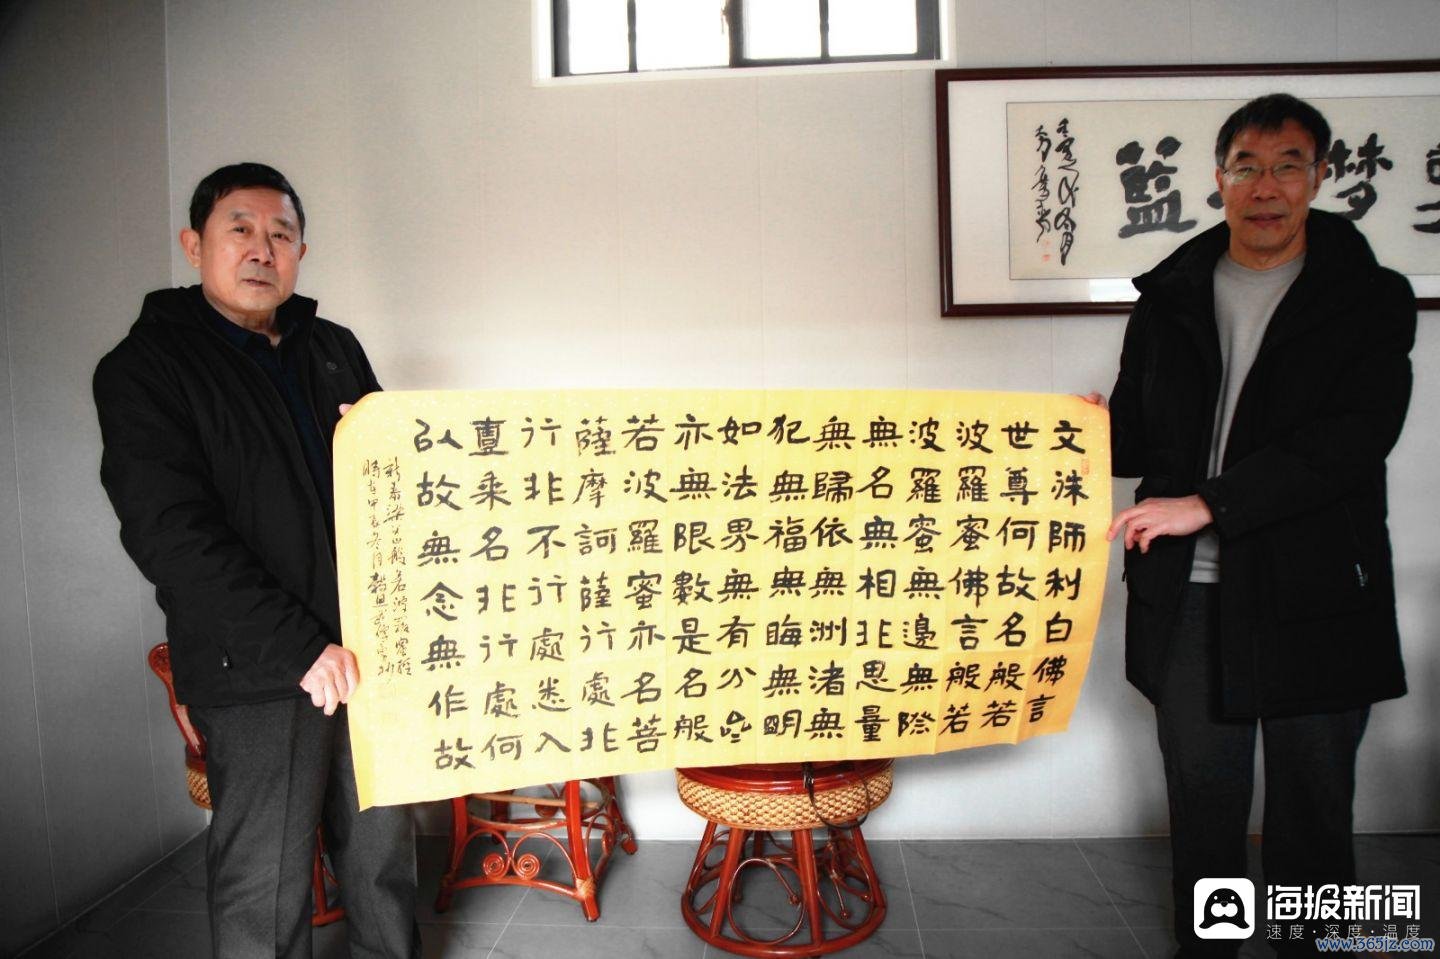 文殊師利白佛言
世尊何故名般若
波羅蜜佛言般若
波羅蜜無邊無際
無名無相非思量
無歸依無洲渚無
犯無福無晦無明
如法界無有分齊
亦無限數是名般
若波羅蜜亦名菩
薩摩訶薩行處非
行非不行處悉入
壹乘名非行處何
以故無念無作故
新泰梁父山般若波羅蜜經
時在甲辰冬月
梦
藍
海报新闻
速度·深度·温度
www.365jz.com